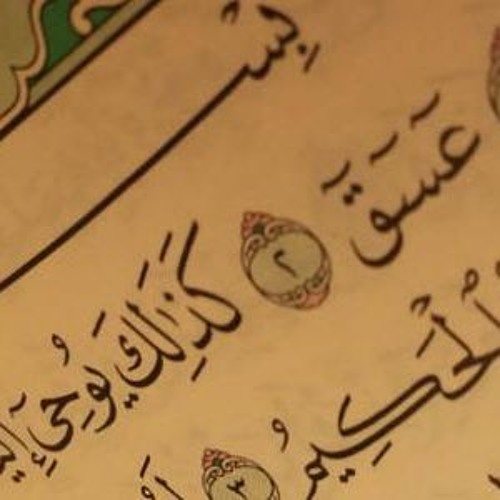 بِسْ
عٓسٓقٓ ٢ كَذَٰلِكَ يُوحِىٓ إِلَي
ٱلْحَكِيمُ ٣